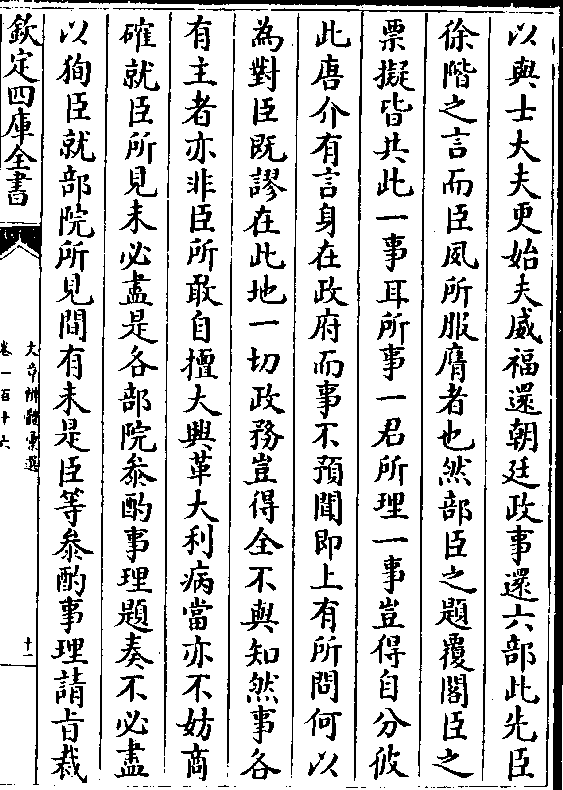 以與士大夫更始夫威福還朝廷政事還六部此先臣
徐階之言而臣夙所服膺者也然部臣之題覆閣臣之
票擬皆共此一事耳所事一君所理一事豈得自分彼
此唐介有言身在政府而事不預聞即上有所問何以
為對臣既謬在此地一切政務豈得全不與知然事各
有主者亦非臣所敢自擅大興革大利病當亦不妨商
確就臣所見未必盡是各部院叅酌事理題奏不必盡
以狥臣就部院所見間有未是臣等叅酌事理請旨裁
欽定四庫全書
文章辨體彚選
卷一百十六
十二